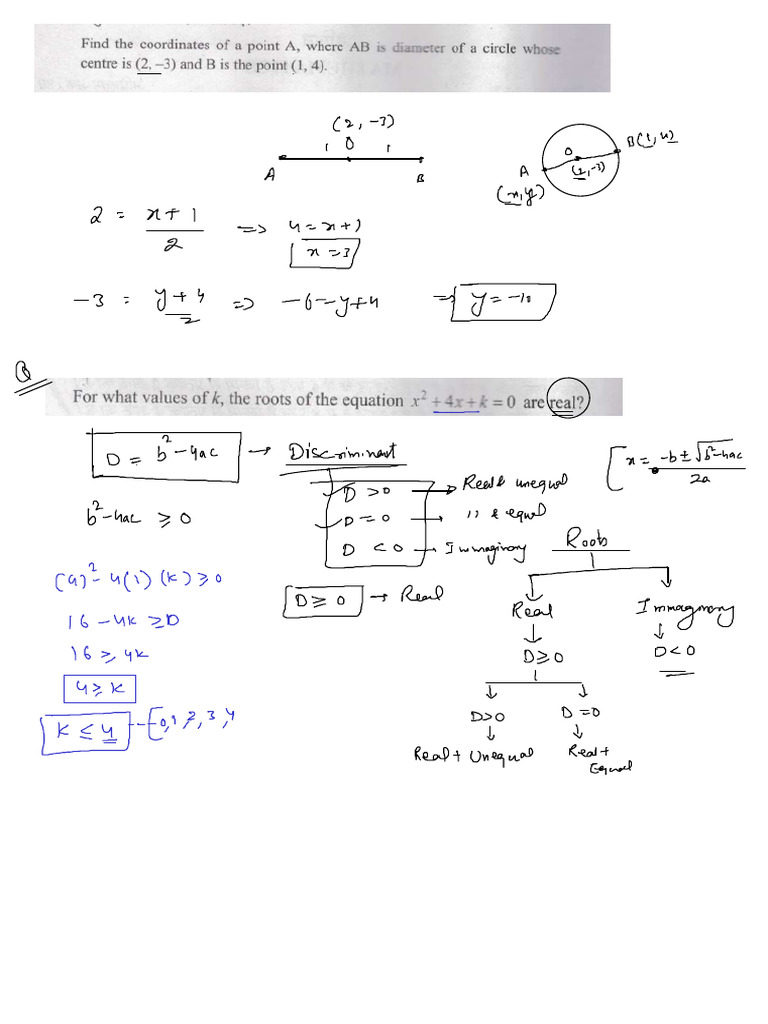 Find the coordinates of a point A, where AB is diameter of a circle whose
centre is (2, –3) and B is the point (1, 4).
(2, -3)
1 O 1
A B
O
(2,-3)
A
(x,y)
B(1,4)
2 = x+1/2 => 4=x+1
x=3
-3 = y+4/2 => -6=y+4 => y=-10
Q
For what values of k, the roots of the equation x² + 4x + k = 0 are real?
D = b²-4ac → Discriminant
x = -b±√b²-4ac/2a
D >0 → Real & unequal
D =0 → ,, & equal
D <0 → Immaginory
b²-4ac ≥ 0
D ≥ 0 → Real
(4)² - 4(1)(k) ≥ 0
16 - 4k ≥ 0
16 ≥ 4k
4 ≥ k
k ≤ 4 -- [0,1,2,3,4
Roots
Real Immagnory
D≥0 D<0
D>0 D=0
Real + Unequal Real + Equal